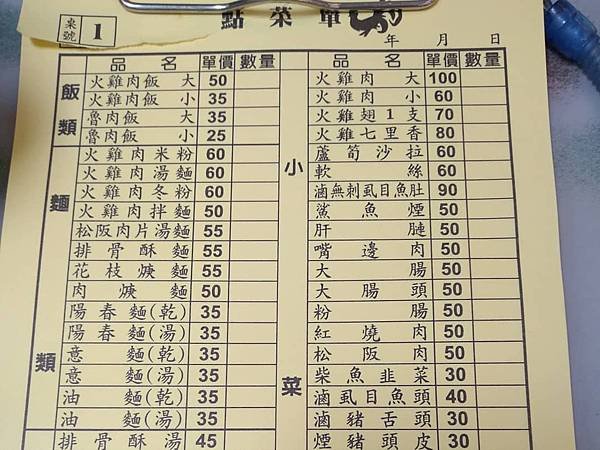 桌號 1
點菜單
年 月 日
品名 單價 數量 品名 單價 數量
飯類
火雞肉飯 大 50
火雞肉飯 小 35
魯肉飯 大 35
魯肉飯 小 25
麵類
火雞肉米粉 60
火雞肉湯麵 60
火雞肉冬粉 60
火雞肉拌麵 50
松阪肉片湯麵 55
排骨酥麵 55
花枝焿麵 55
肉焿麵 50
陽春麵(乾) 35
陽春麵(湯) 35
意麵(乾) 35
意麵(湯) 35
油麵(乾) 35
油麵(湯) 35
排骨酥湯 45
小菜
火雞肉 大 100
火雞肉 小 60
火雞翅1支 70
火雞七里香 80
蘆筍沙拉 60
軟絲 60
滷無刺虱目魚肚 90
鯊魚煙 50
肝腱 50
嘴邊肉 50
大腸 50
大腸頭 50
粉腸 50
紅燒肉 50
松阪肉 50
柴魚韭菜 30
滷虱目魚頭 40
滷豬舌頭 30
煙豬頭皮 30